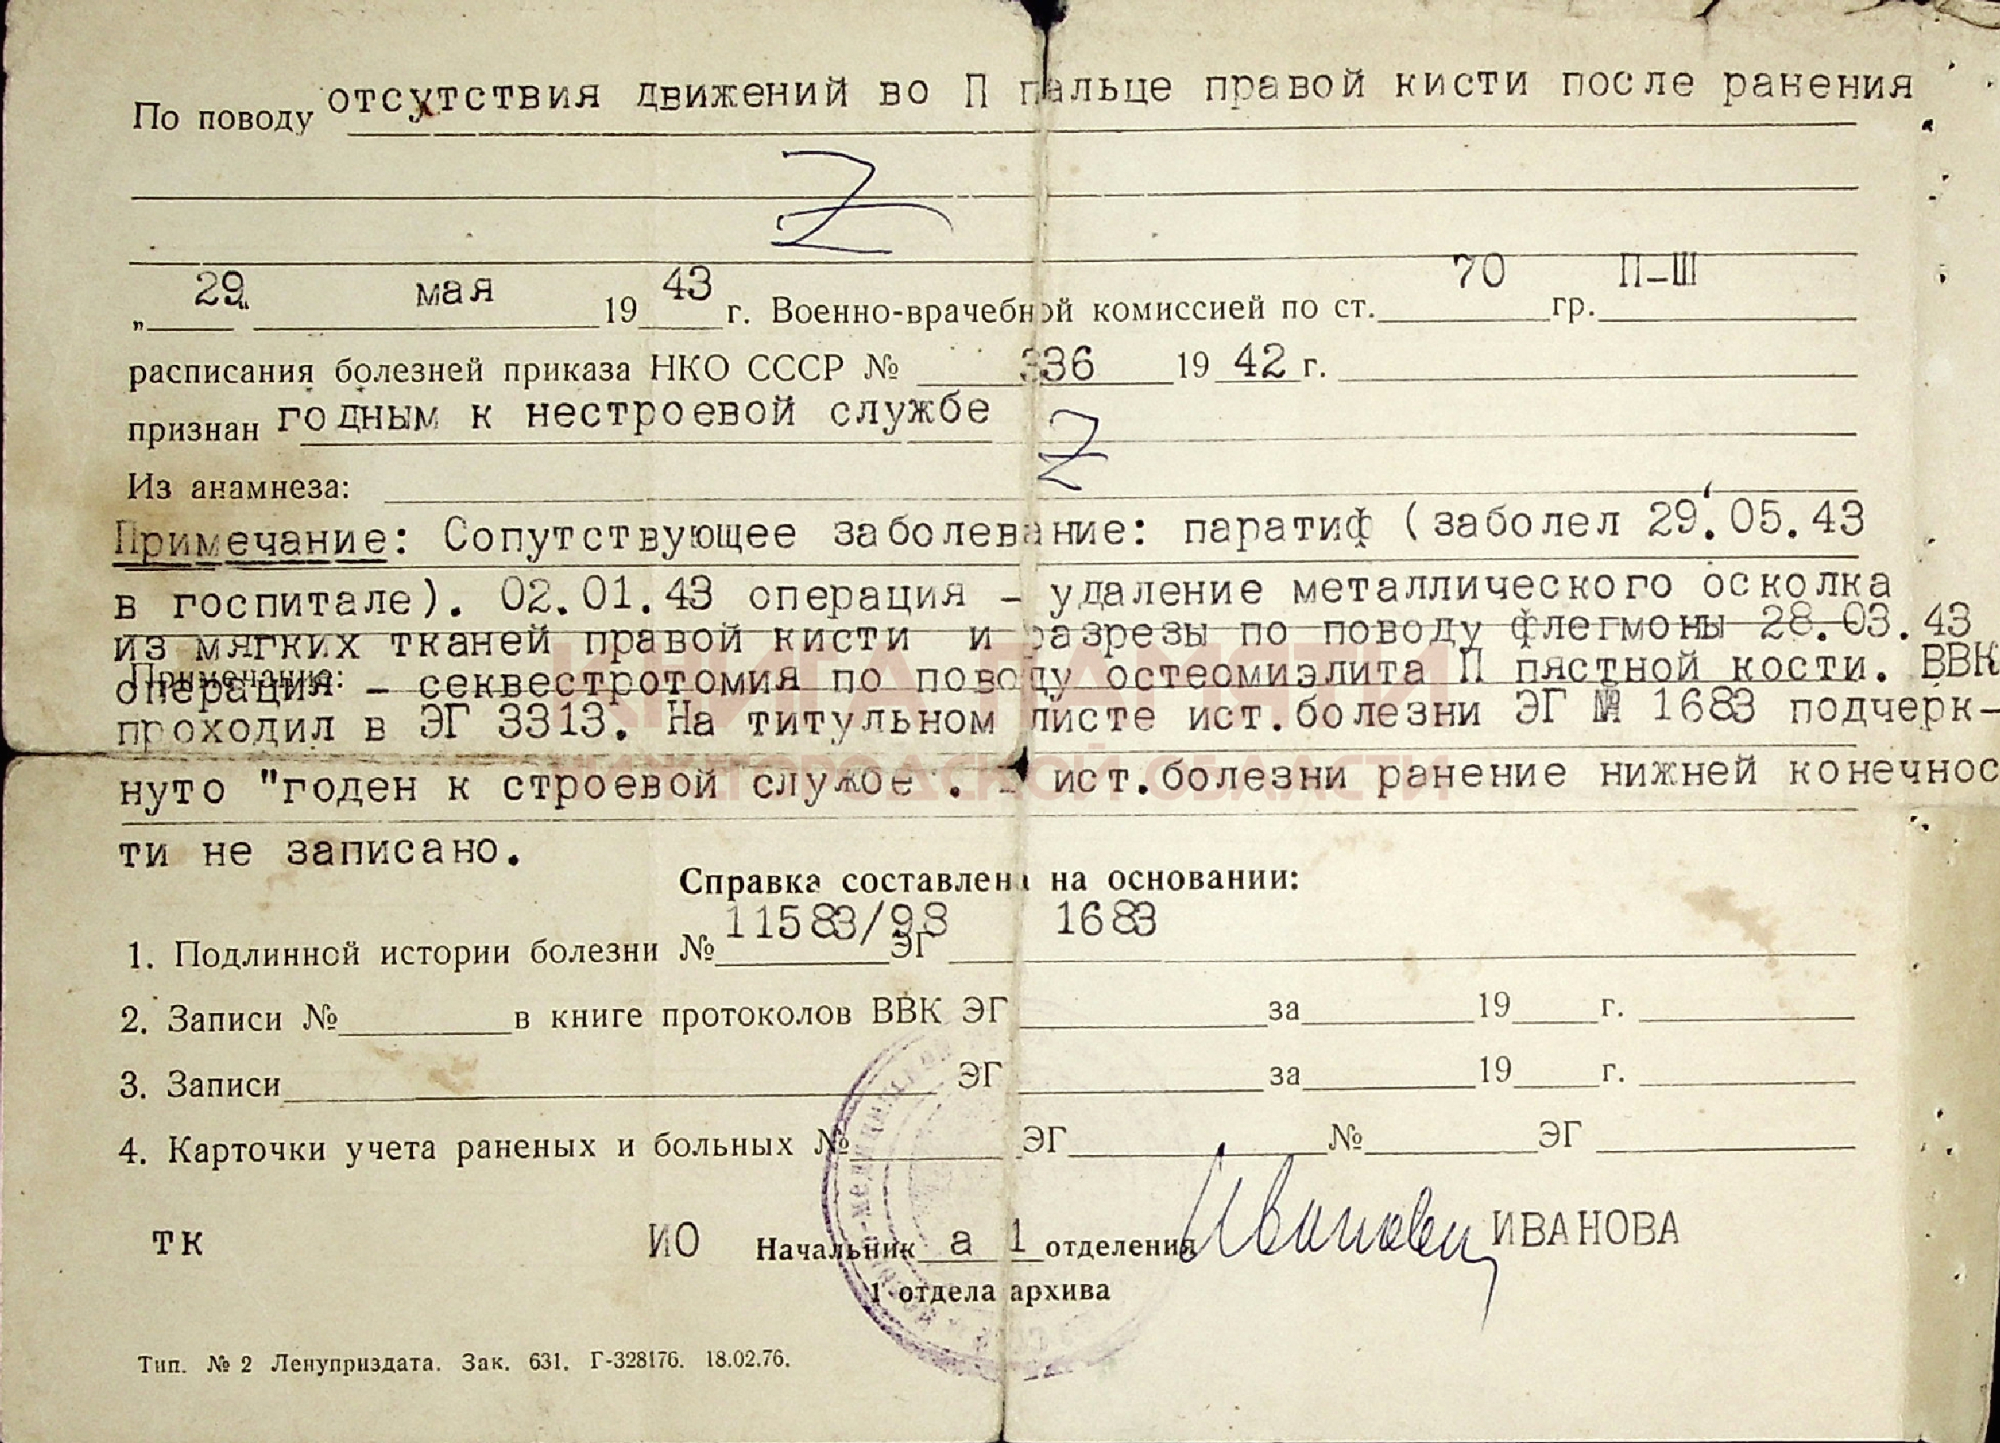 По поводу отсутствия движений во П пальце правой кисти после ранения
„29“ мая 1943 г. Военно-врачебной комиссией по ст. 70 гр. П-Ш
расписания болезней приказа НКО СССР № 336 1942 г.
признан годным к нестроевой службе
Из анамнеза:
Примечание: Сопутствующее заболевание: паратиф (заболел 29.05.43
в госпитале). 02.01.43 операция - удаление металлического осколка
из мягких тканей правой кисти и разрезы по поводу флегмоны 28.03.43
Примечание:
операция - секвестротомия по поводу остеомиэлита П пястной кости. ВВК
проходил в ЭГ 3313. На титульном листе ист.болезни ЭГ № 1683 подчерк-
нуто "годен к строевой службе . ист.болезни ранение нижней конечнос
ти не записано.
КНИГА ПАМЯТИ
НИЖЕГОРОДСКОЙ ОБЛАСТИ
Справка составлена на основании:
1. Подлинной истории болезни № 11583/98 ЭГ 1683
2. Записи № в книге протоколов ВВК ЭГ за 19 г.
3. Записи ЭГ за 19 г.
4. Карточки учета раненых и больных № ЭГ № ЭГ
тк ИО Начальник а 1 отделения Иванова ИВАНОВА
1 отдела архива
Тип. № 2 Ленуприздата. Зак. 631. Г-328176. 18.02.76.